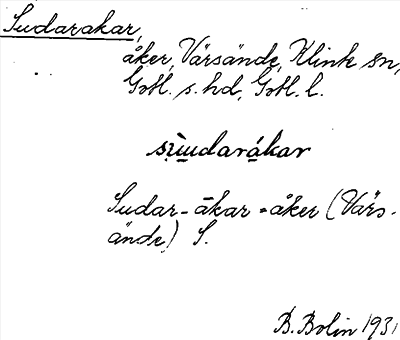 Sudarakar,
åker, Värsände, Klinte sn,
Gotl. s. hd, Gotl. l.
sùudarákar
Sudar-åkar = åker (Värs-
ände) S.
B. Bolin 1931